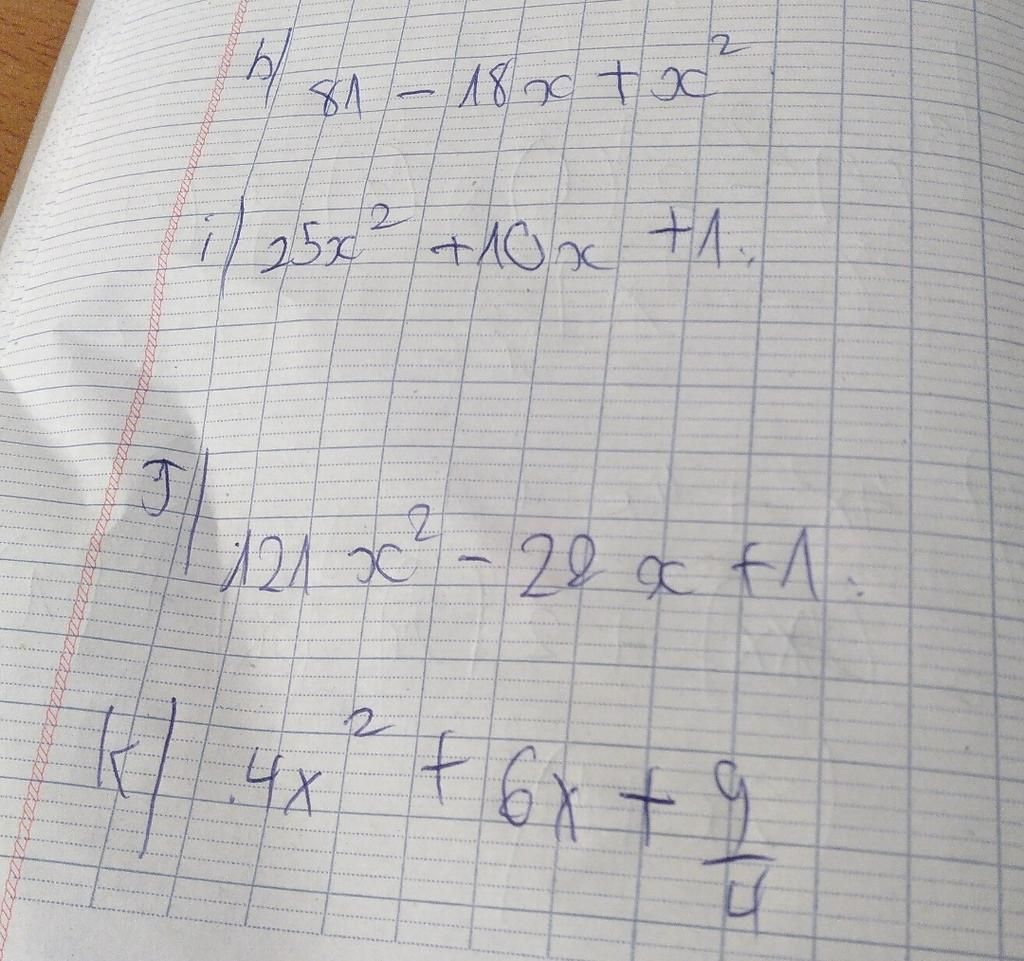 h/ 81 - 18x + x²
i/ 25x² + 10x + 1.
J/ 121x² - 22x + 1.
K/ 4x² + 6x + 9/4